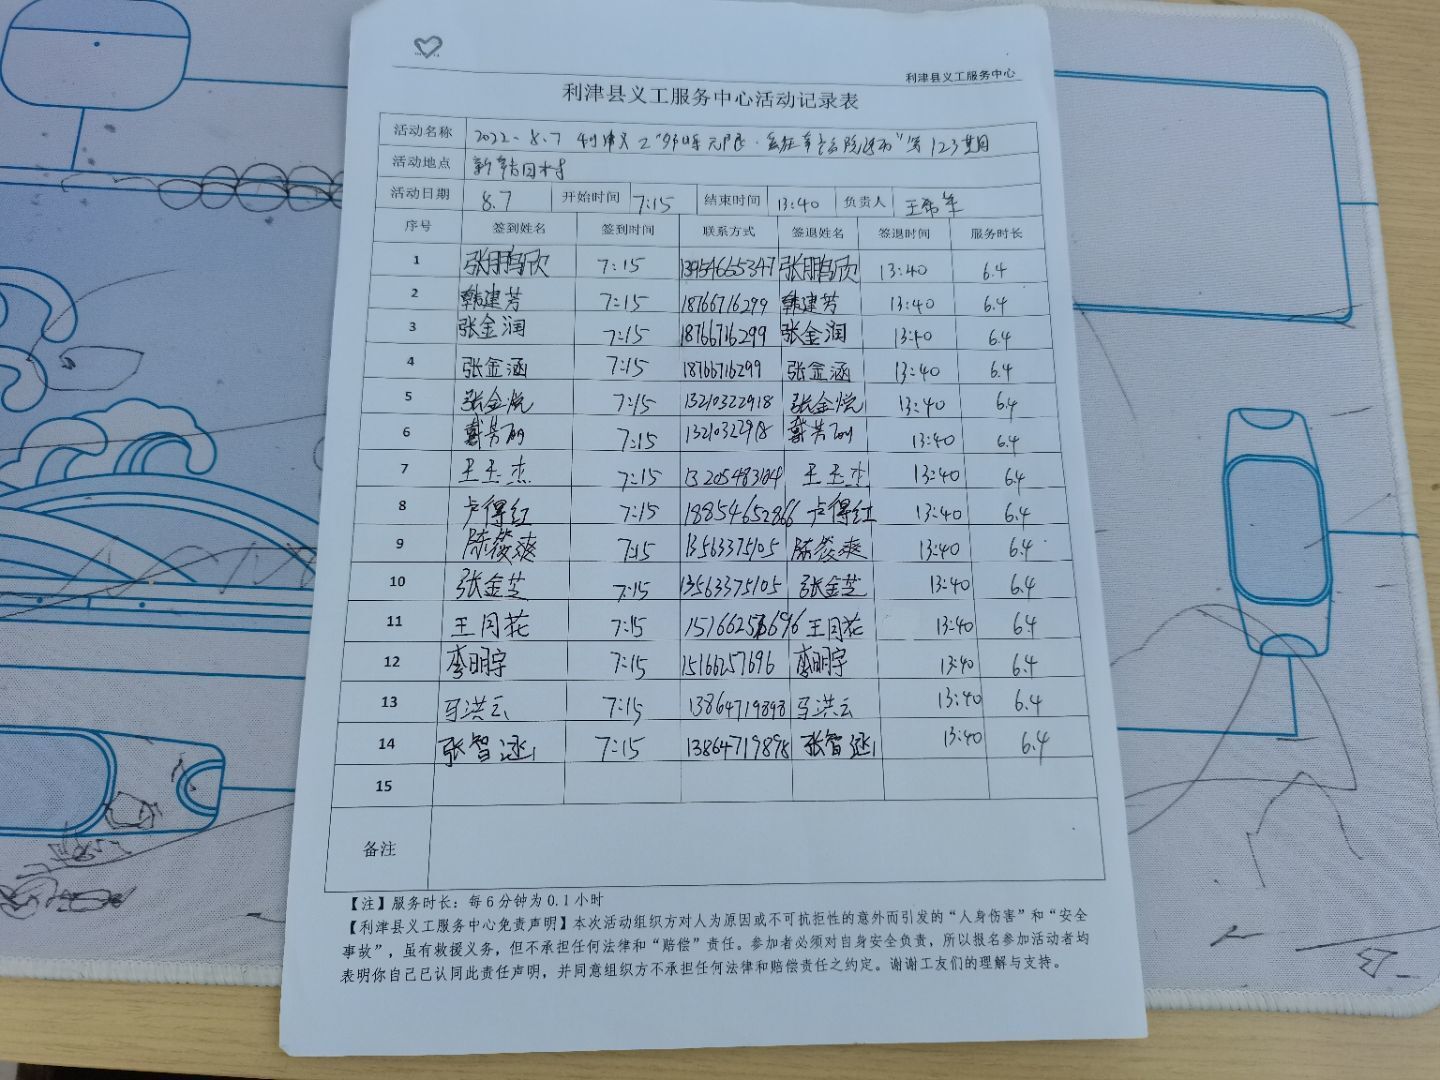 利津县义工服务中心
利津县义工服务中心活动记录表
活动名称 2022.8.7 利津义工 第123期
活动地点 新
活动日期 8.7 开始时间 7:15 结束时间 13:40 负责人 王希军
序号 签到姓名 签到时间 联系方式 签退姓名 签退时间 服务时长
1 张鹏欣 7:15 13954665347 张鹏欣 13:40 6.4
2 韩建芳 7:15 18766716299 韩建芳 13:40 6.4
3 张金润 7:15 18766716299 张金润 13:40 6.4
4 张金涵 7:15 18766716299 张金涵 13:40 6.4
5 张金悦 7:15 13210322918 张金悦 13:40 6.4
6 7:15 13210322918 13:40 6.4
7 王玉杰 7:15 13205483104 王玉杰 13:40 6.4
8 卢得红 7:15 18854652866 卢得红 13:40 6.4
9 陈筱爽 7:15 13563375105 陈筱爽 13:40 6.4
10 张金芝 7:15 13563375105 张金芝 13:40 6.4
11 王同花 7:15 王同花 13:40 6.4
12 李明宇 7:15 15166257696 李明宇 13:40 6.4
13 马洪云 7:15 13864719898 马洪云 13:40 6.4
14 张智涵 7:15 13864719898 张智涵 13:40 6.4
15
备注
【注】服务时长：每6分钟为0.1小时
【利津县义工服务中心免责声明】本次活动组织方对人为原因或不可抗拒性的意外而引发的“人身伤害”和“安全
事故”，虽有救援义务，但不承担任何法律和“赔偿”责任。参加者必须对自身安全负责，所以报名参加活动者均
表明你自己已认同此责任声明，并同意组织方不承担任何法律和赔偿责任之约定。谢谢工友们的理解与支持。